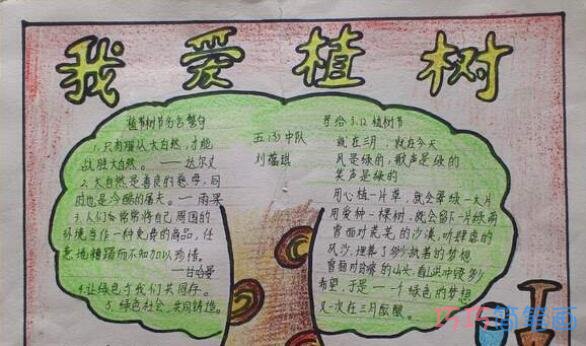 我爱植树
植树节名言警句
1.只有顺从大自然,才能
战胜大自然。——达尔文
2.大自然是善良的慈母,同
时也是冷酷的屠夫。——雨果
3.人们常常将自己周围的
环境当作一种免费的商品,任
意地糟蹋而不知加以珍惜。
——甘哈曼
4.让绿色与我们共同存。
5.绿色社会,共同铸造。
五(3)中队
刘蕴琪
写给3.12植树节
就在三月,就在今天
风是绿的,歌声是绿的
笑声是绿的
用心植一片草,就会牵绿一大片
用爱种一棵树,就会留下一片绿雨
曾面对茫茫的沙漠,听肆虐的
风沙,埋葬了多少执着的梦想
曾面对的山头,看洪冲毁多少
希望,于是一个绿色的梦想
又一次在三月酝酿。
巧巧简笔画